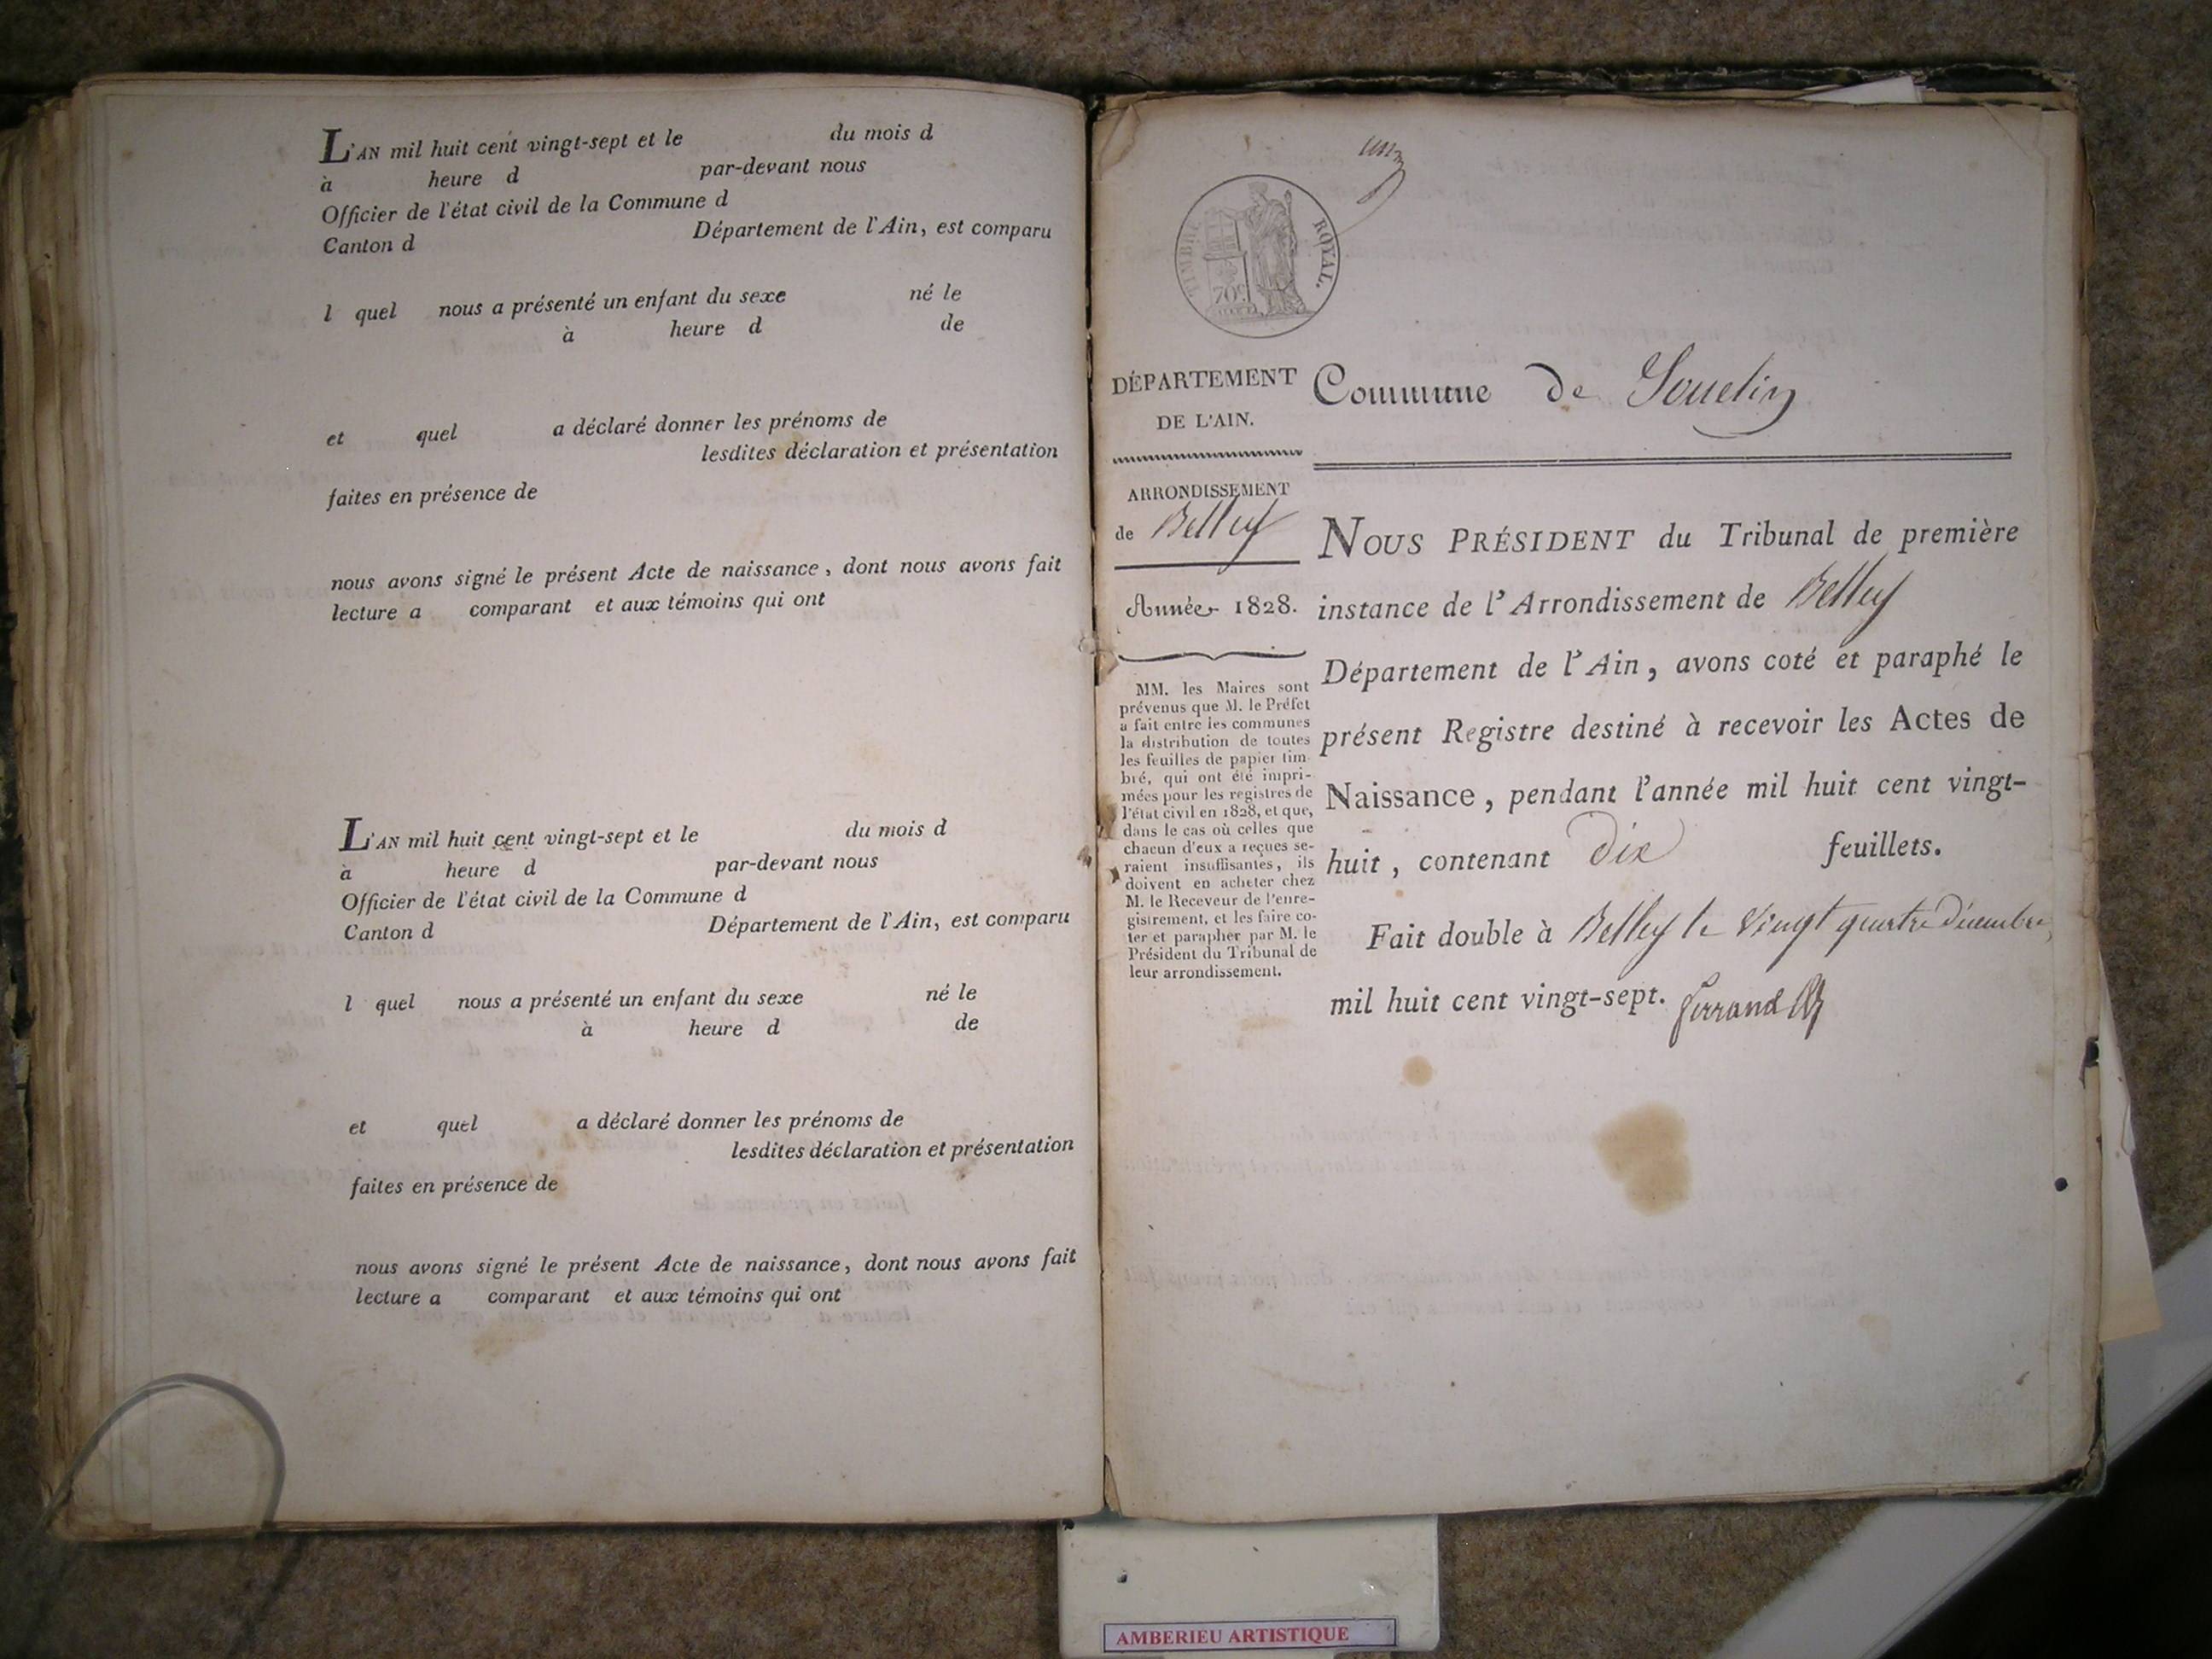 L'AN mil huit cent vingt-sept et le du mois d
à heure d par-devant nous
Officier de l'état civil de la Commune d
Canton d Département de l'Ain, est comparu
l quel nous a présenté un enfant du sexe né le
à heure d de
et quel a déclaré donner les prénoms de
lesdites déclaration et présentation
faites en présence de
nous avons signé le présent Acte de naissance, dont nous avons fait
lecture a comparant et aux témoins qui ont
L'AN mil huit cent vingt-sept et le du mois d
à heure d par-devant nous
Officier de l'état civil de la Commune d
Canton d Département de l'Ain, est comparu
l quel nous a présenté un enfant du sexe né le
à heure d de
et quel a déclaré donner les prénoms de
lesdites déclaration et présentation
faites en présence de
nous avons signé le présent Acte de naissance, dont nous avons fait
lecture a comparant et aux témoins qui ont
un
TIMBRE ROYAL.
70c
DÉPARTEMENT
DE L'AIN.
ARRONDISSEMENT
de Belley
Année 1828.
MM. les Maires sont
prévenus que M. le Préfet
a fait entre les communes
la distribution de toutes
les feuilles de papier tim-
bré, qui ont été impri-
mées pour les registres de
l'état civil en 1828, et que,
dans le cas où celles que
chacun d'eux a reçues se-
raient insuffisantes, ils
doivent en acheter chez
M. le Receveur de l'enre-
gistrement, et les faire co-
ter et parapher par M. le
Président du Tribunal de
leur arrondissement.
Commune de Souclin
NOUS PRÉSIDENT du Tribunal de première
instance de l'Arrondissement de Belley
Département de l'Ain, avons coté et paraphé le
présent Registre destiné à recevoir les Actes de
Naissance, pendant l'année mil huit cent vingt-
huit, contenant dix feuillets.
Fait double à Belley le vingt quatre décembre
mil huit cent vingt-sept. Ferrand
AMBERIEU ARTISTIQUE